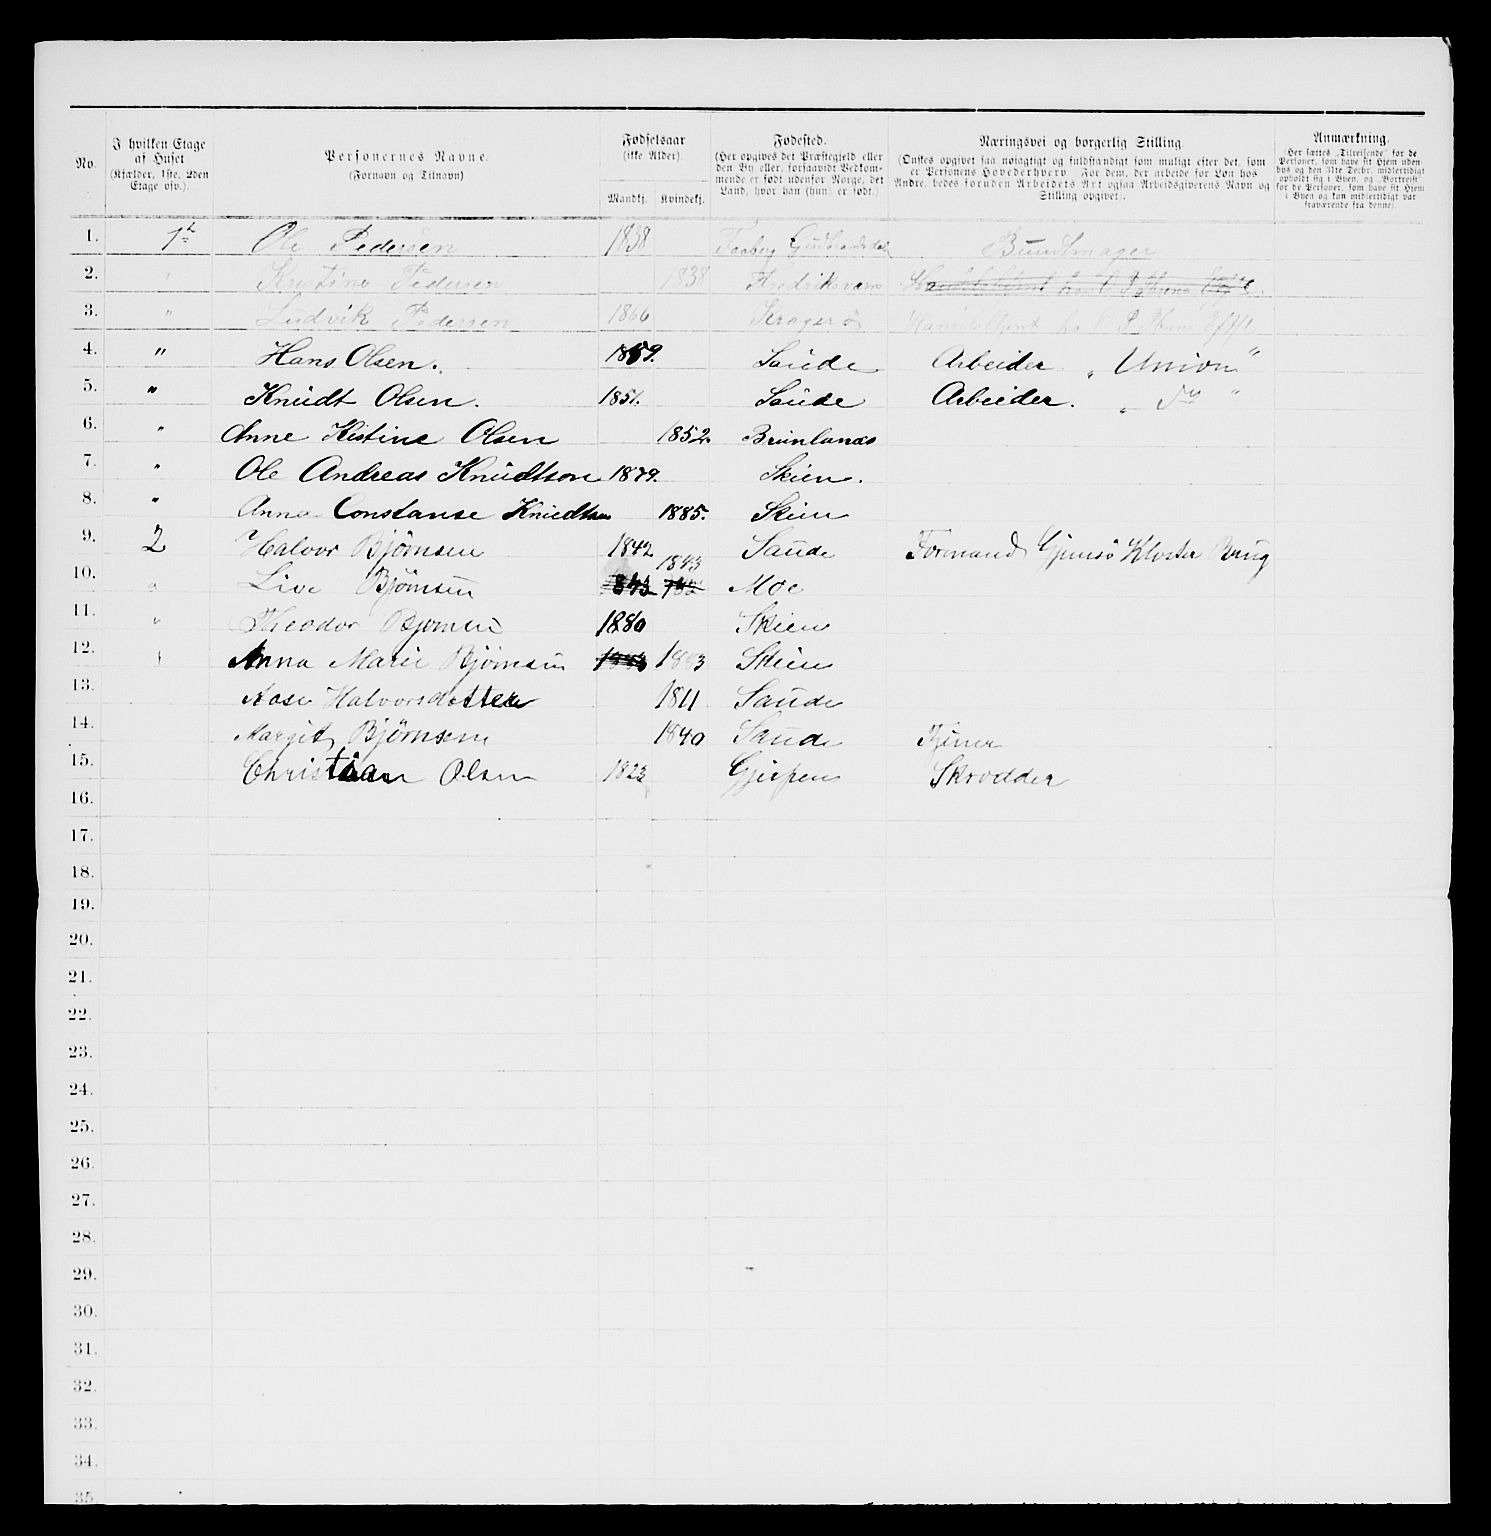 No. | I hvilken Etage af Huset (Kjælder, 1ste, 2den Etage osv.). | Personernes Navne. (Fornavn og Tilnavn) | Fødselsaar (ikke Alder). Mandkj. | Kvindekj. | Fødested. (Her opgives det Præstegjeld eller den By eller, forsaavidt Vedkommende er født udenfor Norge, det Land, hvor han (hun) er født.) | Næringsvei og borgerlig Stilling. (Ønskes opgivet saa nøiagtigt og fuldstændigt som muligt efter det, som er Personens Hovederhverv. For dem, der arbeide for Løn hos Andre, bedes foruden Arbeidets Art ogsaa Arbeidsgiverens Navn og Stilling opgivet). | Anmærkning. (Her sættes „Tilreisende“ for de Personer, som have sit Hjem udenbys og den 31te Decbr. midlertidigt opholdt sig i Byen, og „Bortreist“ for de Personer, som have sit Hjem i Byen og kun midlertidigt var fraværende fra denne).
1. 1te Ole Pedersen 1838 Faaberg Gudbrandsdal Bundtmager
2. " Kristine Pedersen 1838 Fredriksværn Handelsbetjent hos O P
3. " Ludvik Pedersen 1866 Kragerø Handelsbetjent hos O P
4. " Hans Olsen. 1859. Saude Arbeider „ Union "
5. " Knudt Olsen. 1851. Saude Arbeider. „ do "
6. " Anne Kistine Olsen 1852. Brunlanæs
7. " Ole Andreas Knudtson 1879. Skien.
8. " Anna Constanse Knudtson 1885. Skien
9. 2 Halvor Bjørnsen 1842 Saude Formand Gjemsø Kloster Brug
10. " Live Bjørnsen 1843 1843 Moe
11. " Theodor Bjørnsen 1880 Skien
12. Anna Marie Bjørnsen 1883 1883 Skien
13. Aase Halvorsdatter 1811 Saude
14. Margit Bjørnsen 1840 Saude Tjener
15. Christian Olsen 1823 Gjerpen Skrædder
16.
17.
18.
19.
20.
21.
22.
23.
24.
25.
26.
27.
28.
29.
30.
31.
32.
33.
34.
35